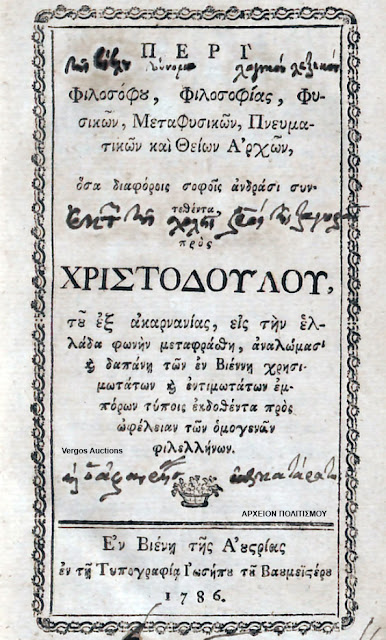 ΠΕΡΙ
Φιλοσόφου, Φιλοσοφίας, Φυ-
σικῶν, Μεταφυσικῶν, Πνευμα-
τικῶν καὶ Θείων Ἀρχῶν,
ὅσα διαφόροις σοφοῖς ἀνδράσι συν-
τεθέντα,
πρὸς
ΧΡΙΣΤΟΔΟΥΛΟΥ,
τοῦ ἐξ ἀκαρνανίας, εἰς τὴν ἑλ-
λάδα φωνὴν μεταφράσθη, ἀναλώμασι
ϗ δαπάνῃ τῶν ἐν Βιέννῃ χρησι-
μωτάτων ϗ ἐντιμωτάτων ἐμ-
πόρων τύποις ἐκδοθέντα πρὸς
ὠφέλειαν τῶν ὁμογενῶν
φιλελλήνων.
Vergos Auctions
ΑΡΧΕΙΟΝ ΠΟΛΙΤΙΣΜΟΥ
Ἐν Βιένῃ τῆς Αὐςρίας
ἐν τῇ Τυπογραφίᾳ Ἰωσήπου τοῦ Βαυμεϊςέρου
1786.